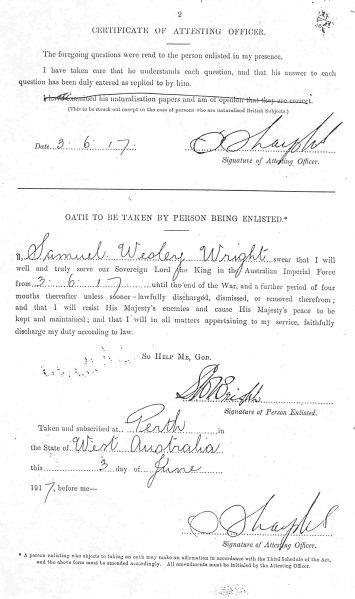 2
CERTIFICATE OF ATTESTING OFFICER.
The foregoing questions were read to the person enlisted in my presence.
I have taken care that he understands each question, and that his answer to each
question has been duly entered as replied to by him.
I have examined his naturalisation papers and am of opinion that they are correct.
(This to be struck out except in the case of persons who are naturalised British Subjects.)
Date 3. 6. 17.
Signature of Attesting Officer.
OATH TO BE TAKEN BY PERSON BEING ENLISTED.*
I, Samuel Wesley Wright swear that I will
well and truly serve our Sovereign Lord the King in the Australian Imperial Force
from 3. 6. 17 until the end of the War, and a further period of four
months thereafter unless sooner lawfully discharged, dismissed, or removed therefrom;
and that I will resist His Majesty's enemies and cause His Majesty's peace to be
kept and maintained; and that I will in all matters appertaining to my service, faithfully
discharge my duty according to law.
SO HELP ME, GOD.
SWWright
Signature of Person Enlisted.
Taken and subscribed at Perth in
the State of West Australia
this 3 day of June
1917, before me—
Signature of Attesting Officer.
* A person enlisting who objects to taking an oath may make an affirmation in accordance with the Third Schedule of the Act,
and the above form must be amended accordingly. All amendments must be initialed by the Attesting Officer.